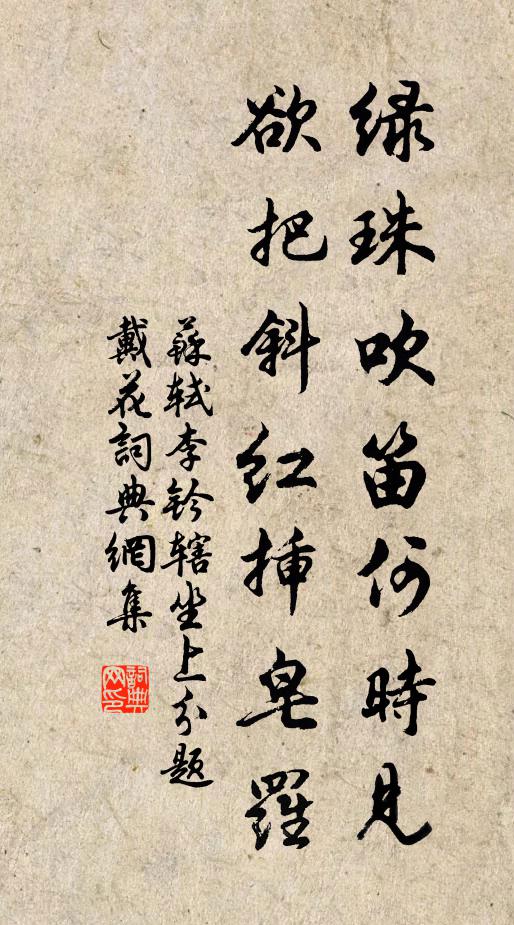 綠珠吹笛何時見
欲把斜紅插皂羅
蘇軾李鈐轄坐上分題
戴花詞典網集
詞典網印